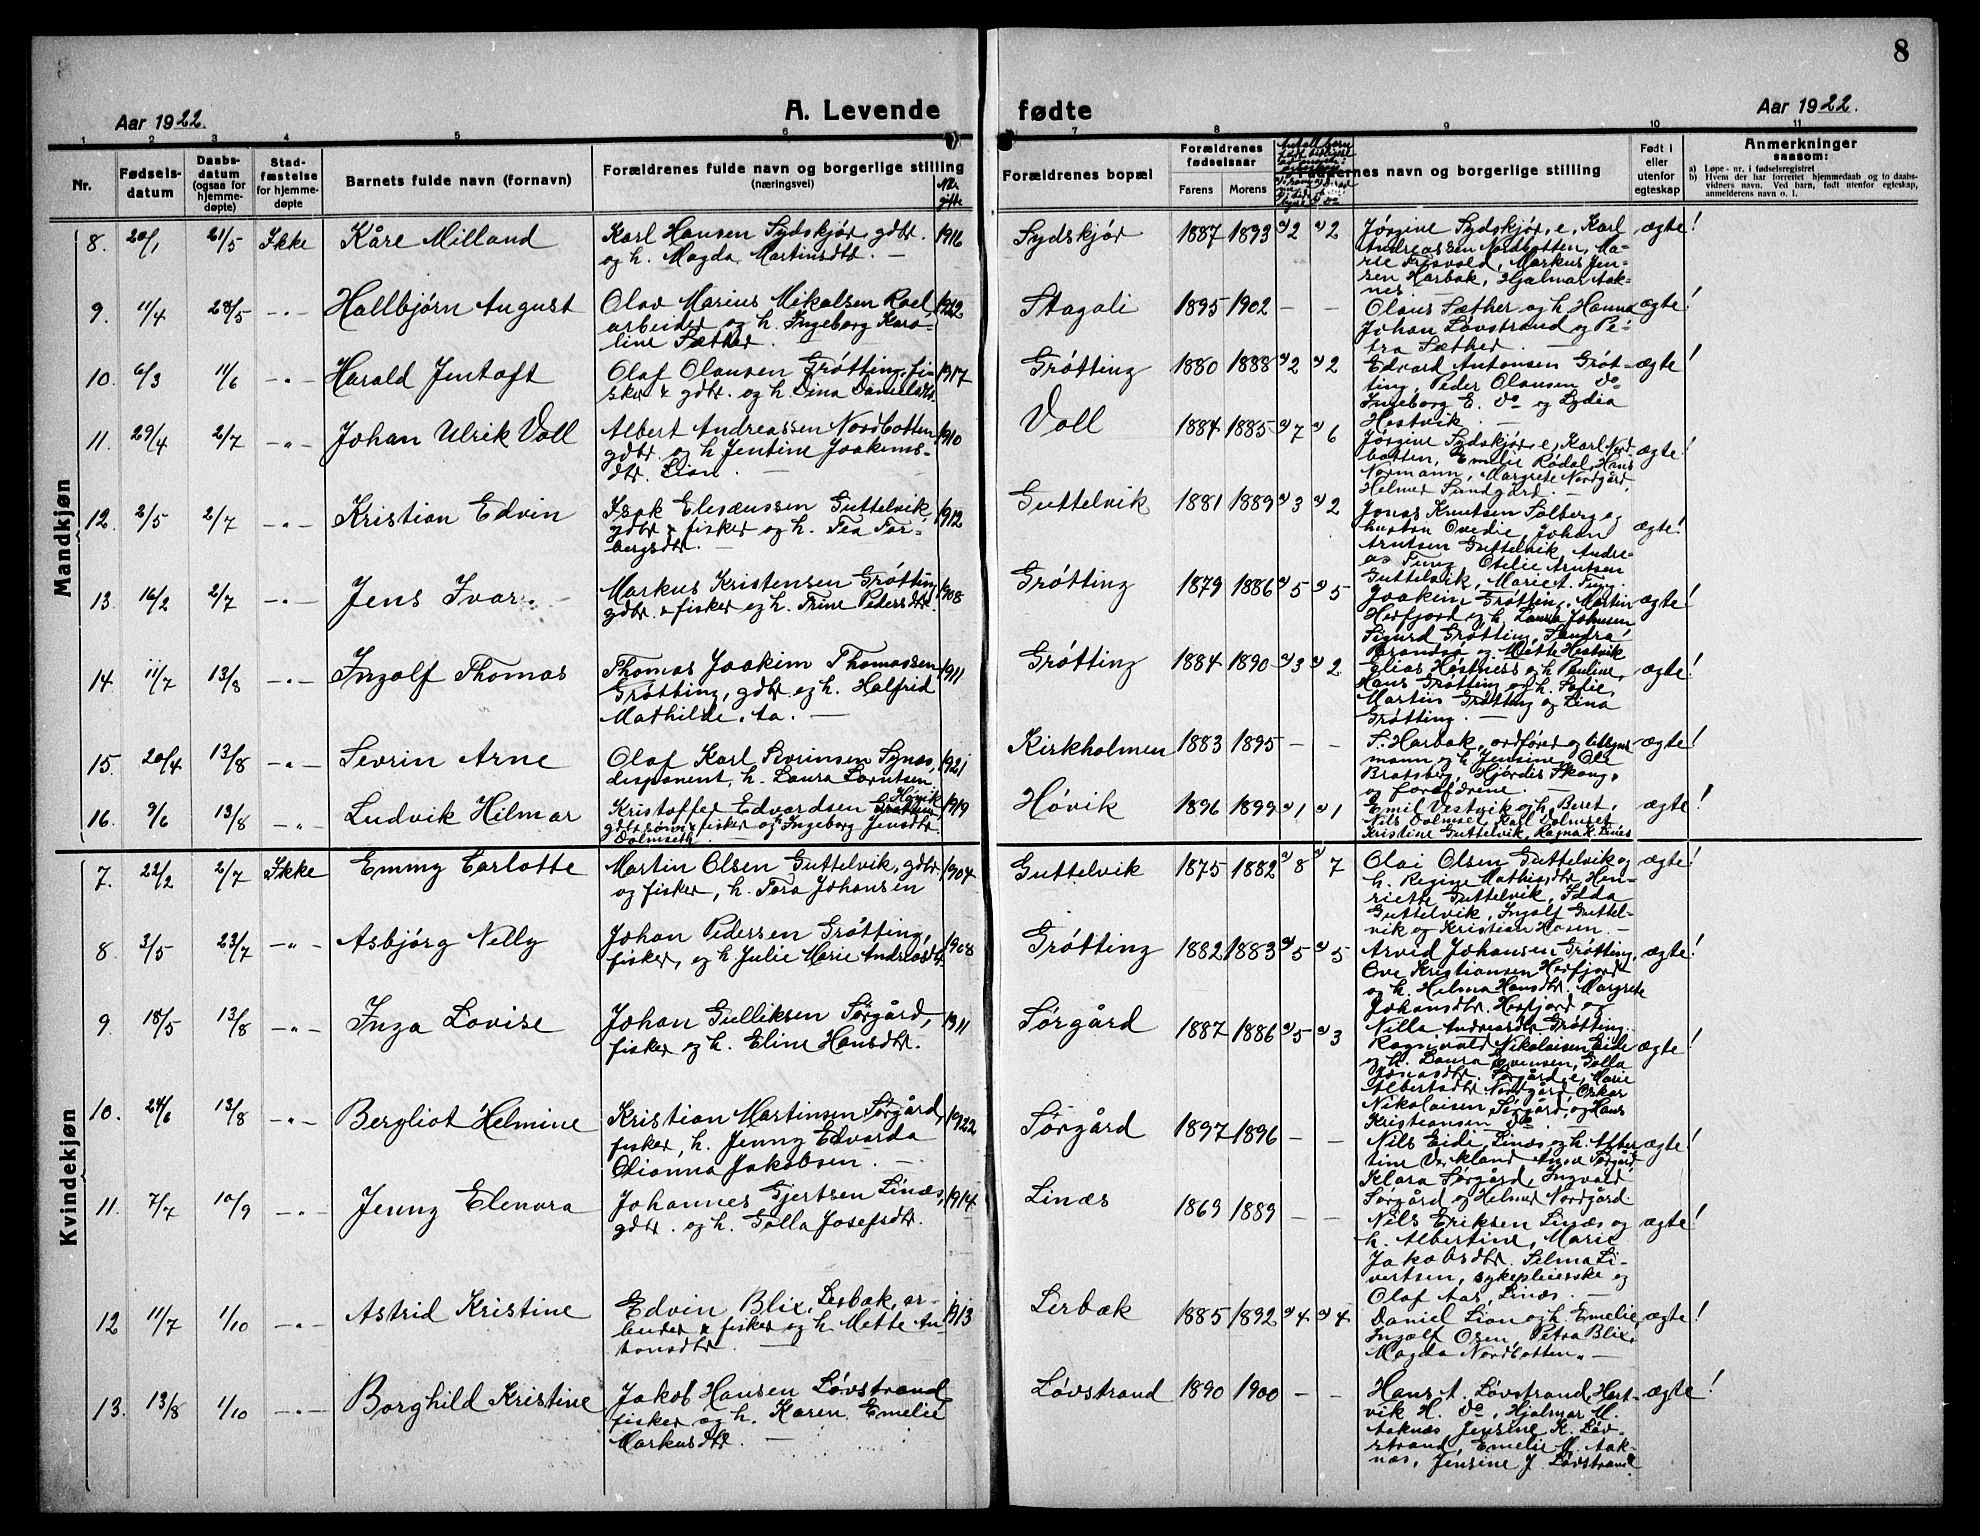 8
Aar 1922.
A. Levende
fødte
Aar 1922.
1 2 3 4 5 6 7 8 9 10 11
Nr.
Fødsels-
datum
Daabs-
datum
(ogsaa for
hjemme-
døpte)
Stad-
fæstelse
for hjemme-
døpte
Barnets fulde navn (fornavn)
Forældrenes fulde navn og borgerlige stilling
(næringsvei)
gifte
Forældrenes bopæl
Forældrenes
fødselsaar
Farens Morens
Faddernes navn og borgerlige stilling
Født i
eller
utenfor
egteskap
Anmerkninger
saasom:
a) Løpe-nr. i fødselsregistret
b) Hvem der har forrettet hjemmedaab og to daabs-
vidners navn. Ved barn, født utenfor egteskap,
anmelderens navn o. l.
Mandkjøn
8. 20/1 21/5 Ikke Kåre Milland
Karl Hansen Sydskjør, gdbr.
og h. Magda Martinsdtr. —
1916 Sydskjør 1887 1893 a) 2 a) 2
Jørgine Sydskjør, e, Karl
Andreassen Nordbotten, Ma-
rie Frisvold, Markus Jen-
sen Harbak, Hjalmar Aak-
nes —
ægte!
9. 11/4 28/5 -"- Hallbjørn August
Olav Marius Mikalsen Roel
arbeider og h. Ingeborg Karo-
line Sæther. —
1922 Stagali 1895 1902 — —
Olaus Sæther og h. Hanna
Johan Løvstrand og Pe-
tra Sæther. —
ægte!
10. 6/3 11/6 -"- Harald Jentoft
Olaf Olausen Grøtting, fi-
sker & gdbr. og h. Dina Danielsdtr.
1917 Grøtting 1880 1888 a) 2 a) 2
Edvard Antonsen Grøt-
ting, Peder Olausen do
Ingeborg E. do og Lydia
Hestvik. —
ægte!
11. 29/4 2/7 -"- Johan Ulrik Voll
Albert Andreassen Nordbotten
gdbr. og h Jentine Joakims-
dtr. Lian. —
1910 Voll 1884 1885 a) 7 a) 6
Jørgine Sydskjør, e, Karl Nord-
botten, Emelie Rødal, Hans
Normann, Margrete Nordgård,
Helmer Sundgård. —
ægte!
12. 2/5 2/7 -"- Kristian Edvin
Isak Elesæussen Guttelvik,
gdbr & fisker og h. Tea Tor-
bergsdtr. —
1912 Guttelvik 1881 1889 a) 3 a) 2
Jonas Knutsen Solberg og
hustru Ovedie, Johan
Arntsen Guttelvik, Andre-
as Fung, Otelie Arntsen
Guttelvik, Marie A. Fung.
ægte!
13. 16/2 2/7 -"- Jens Ivar.
Markus Kristensen Grøtting
gdbr & fisker og h. Trine Pedersdtr.
1908 Grøtting 1879 1886 a) 5 a) 5
Joakim Grøtting, Martin
Herfjord og h. Laura Johnsen
Sigurd Grøtting, Sandra
Brandsø og Mette Hestvik
ægte!
14. 11/7 13/8 -"- Ingolf Thomas
Thomas Joakim Thomassen
Grøtting, gdbr og h. Halfrid
Mathilde, Aa. —
1911 Grøtting 1884 1890 a) 3 a) 2
Elias Høstness og h Pauline,
Hans Grøtting og h. Sofie,
Martin Grøtting og Lina
Grøtting. —
ægte!
15. 20/4 13/8 -"- Sevrin Arne
Olaf Karl Sevrinsen Synes,
disponent, h. Laura Lorntsen
1921 Kirkholmen 1883 1895 — —
S. Harbak, ordfører og tillids-
mann og h Jensine, Ole
Bratsberg, Hjørdis Skong,
og forældrene. —
ægte!
16. 9/6 13/8 -"- Ludvik Hilmar
Kristoffer Edvardsen Høvik
gdbr sønn & fisker og Ingeborg Jensdtr.
Dolmseth.
1919 Høvik 1896 1899 a) 1 a) 1
Emil Vestvik og h. Beret,
Nils Dolmset, Karl Dolmset
Kristine Guttelvik, Ragna K. Linæs
ægte!
Kvindekjøn
7. 22/2 2/7 Ikke Emmy Carlotte
Martin Olsen Guttelvik, gdbr
og fisker, h. Tora Johansen
1904 Guttelvik 1875 1882 a) 8 a) 7
Olai Olsen Guttelvik og
h. Regine Mathisdtr Hen-
riette Guttelvik, Edda
Guttelvik, Ingolf Guttel-
vik og Kristian Hosen. —
ægte!
8. 3/5 23/7 -"- Asbjørg Nelly
Johan Pedersen Grøtting,
fisker, og h. Julie Marie Andreasdtr.
1908 Grøtting 1882 1883 a) 5 a) 5
Arvid Johansen Grøtting,
Ove Kristiansen Herfjord
og h. Helma Hansdtr. Margrete
Johansdtr. Herfjord og
Nilla Andreasdtr. Grøtting.
ægte!
9. 18/5 13/8 -"- Inga Lovise
Johan Gulliksen Sørgård,
fisker og h. Eline Hansdtr.
1911 Sørgård 1887 1886 a) 5 a) 3
Ragnvald Nikolaisen Eide
og h. Laura Evensen, Golla
Jonasdtr. Sørgård, e, Marie
Albertsdtr. Nordgård, Oskar
Nikolaisen, Sørgård, og Hans
Kristiansen do.
ægte!
10. 24/6 13/8 -"- Bergliot Helmine
Kristian Martinsen Sørgård,
fisker, h. Jenny Edvarda
Olianna Jakobsen. —
1922 Sørgård 1897 1896 — —
Nils Eide, Linæs og h. Alber-
tine Verkland Sørgård
Klara Sørgård, Ingvald
Sørgård og Helmer Nordgård.
ægte!
11. 7/7 10/9 -"- Jenny Elenora
Johannes Gjertsen Linæs,
gdbr. og h. Golla Josefsdtr.
1914 Linæs 1869 1889 — —
Nils Eriksen Linæs og
h. Albertine, Marie
Jakobsdtr. Selma Si-
vertsen, sykepleierske og
Olaf Aas, Linæs. —
ægte!
12 11/7 1/10 -"- Astrid Kristine
Edvin Blix, Lerbæk, ar-
beider & fisker og h. Mette An-
tonsdtr. —
1913 Lerbæk 1885 1892 a) 4 a) 4
Daniel Lian og h. Emelie,
Ingolf Osen, Petra Blix,
Magda Nordbotten. —
ægte!
13. 13/8 1/10 -"- Borghild Kristine
Jakob Hansen Løvstrand
fisker og h. Karen Emelie
Markusdtr. —
Løvstrand 1890 1900 — —
Hans A. Løvstrand, Hart-
vik H. do, Hjalmar M.
Aaknæs, Jensine K. Løv-
strand, Emelie M. Aak-
næs, Jensine J. Løvstrand
ægte!